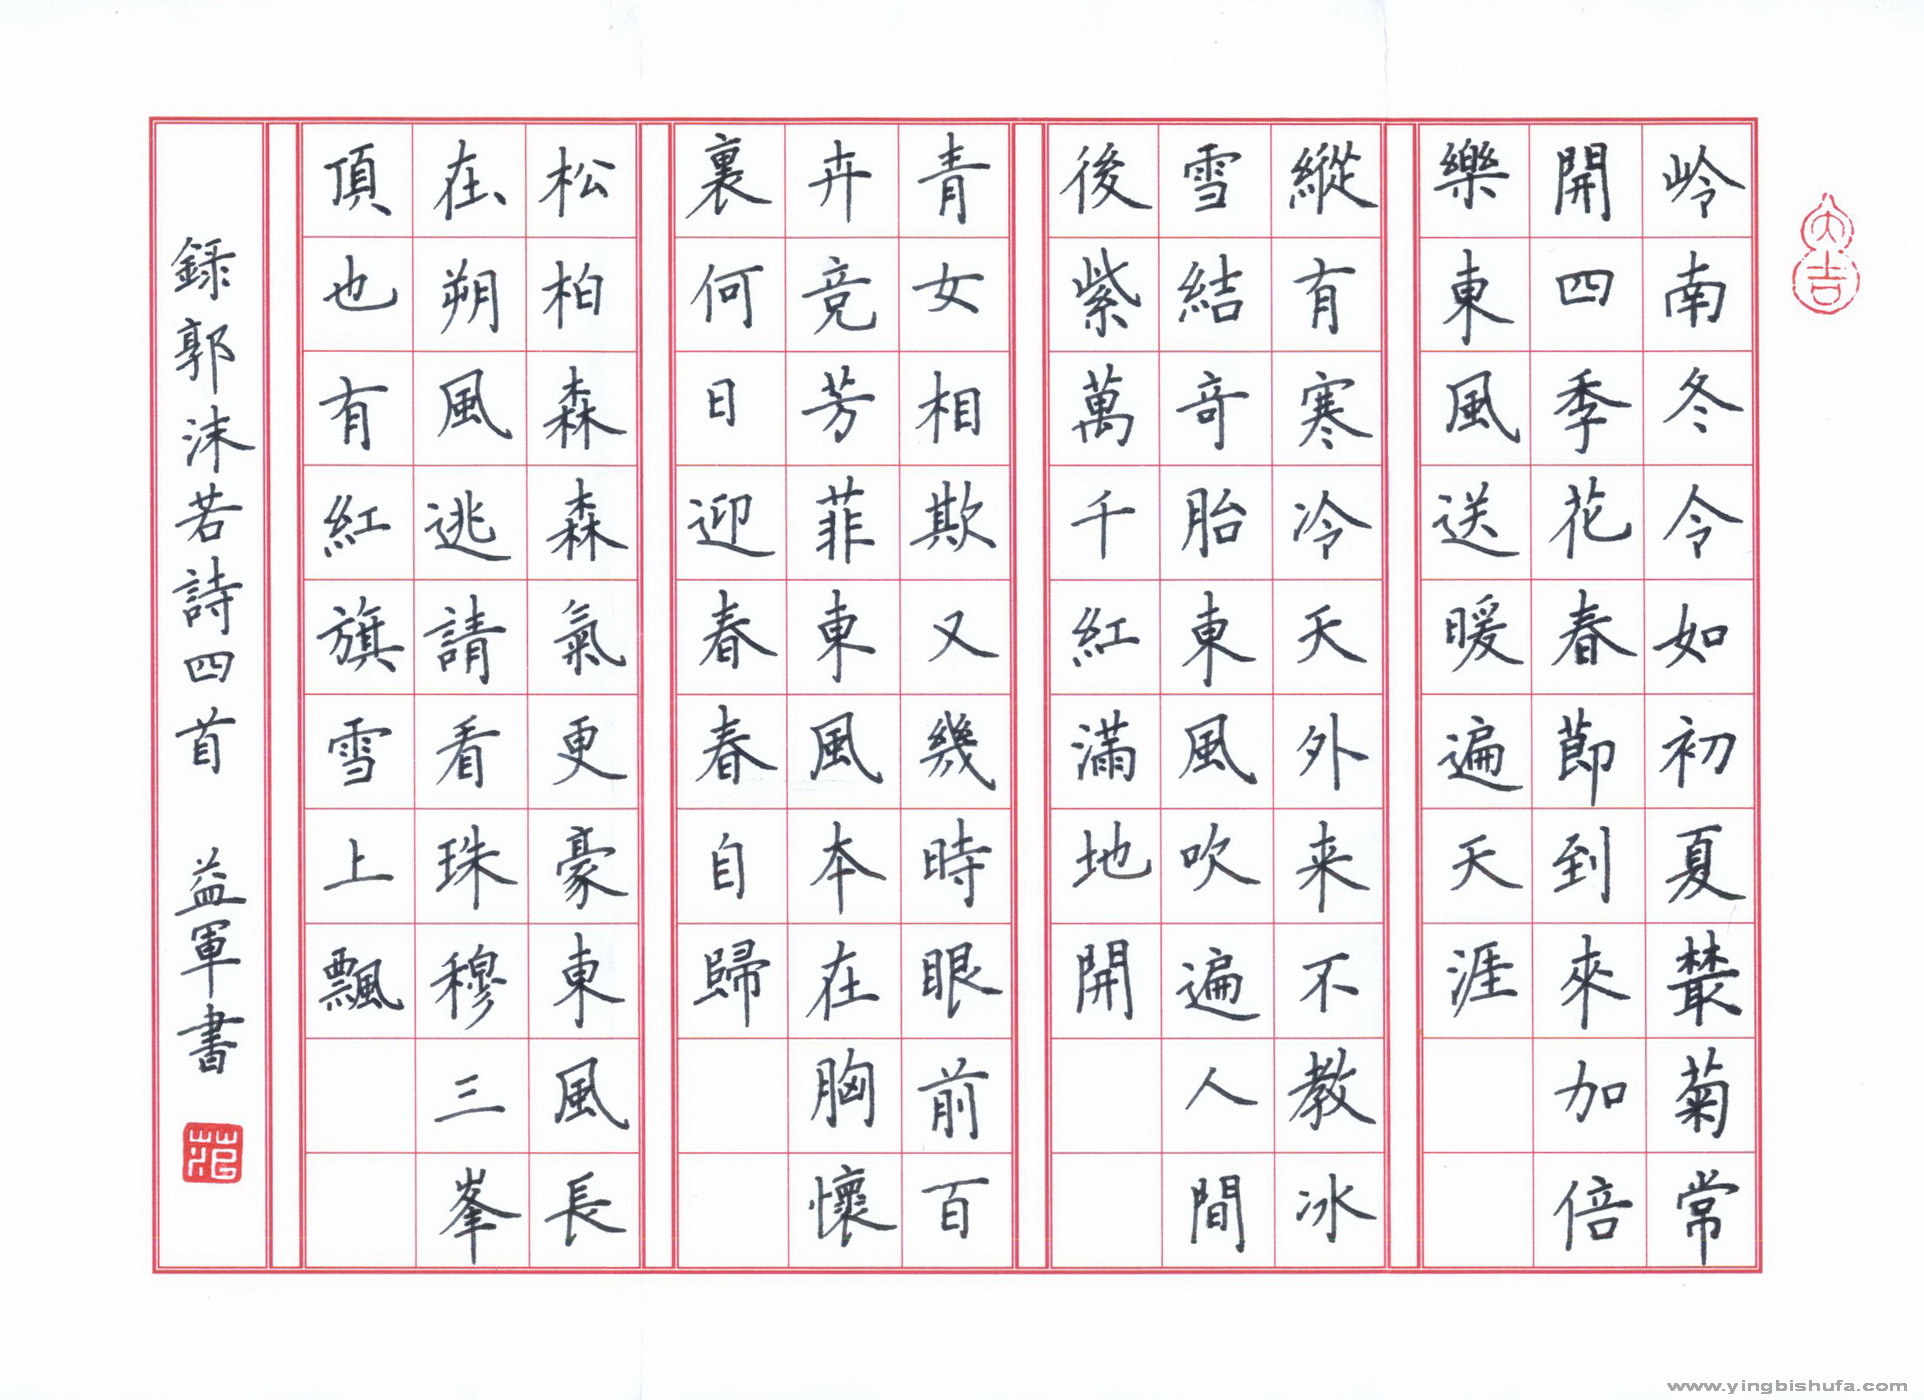 大吉
岭南冬令如初夏叢菊常
開四季花春節到來加倍
樂東風送暖遍天涯
縱有寒冷天外来不教冰
雪結奇胎東風吹遍人間
後紫萬千紅滿地開
青女相欺又幾時眼前百
卉競芳菲東風本在胸懷
裏何日迎春春自歸
松柏森森氣更豪東風長
在朔風逃請看珠穆三峯
頂也有紅旗雪上飄
録郭沫若詩四首 益軍書
www.yingbishufa.com